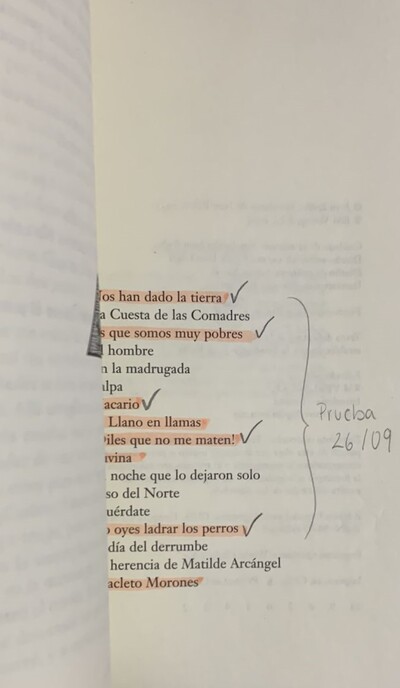 Nos han dado la tierra ✓
a Cuesta de las Comadres
s que somos muy pobres ✓
l hombre
n la madrugada
alpa
acario ✓
Llano en llamas
Diles que no me maten! ✓
uvina
noche que lo dejaron solo
so del Norte
uérdate
o oyes ladrar los perros ✓
día del derrumbe
herencia de Matilde Arcángel
acleto Morones
Prueba
26/09